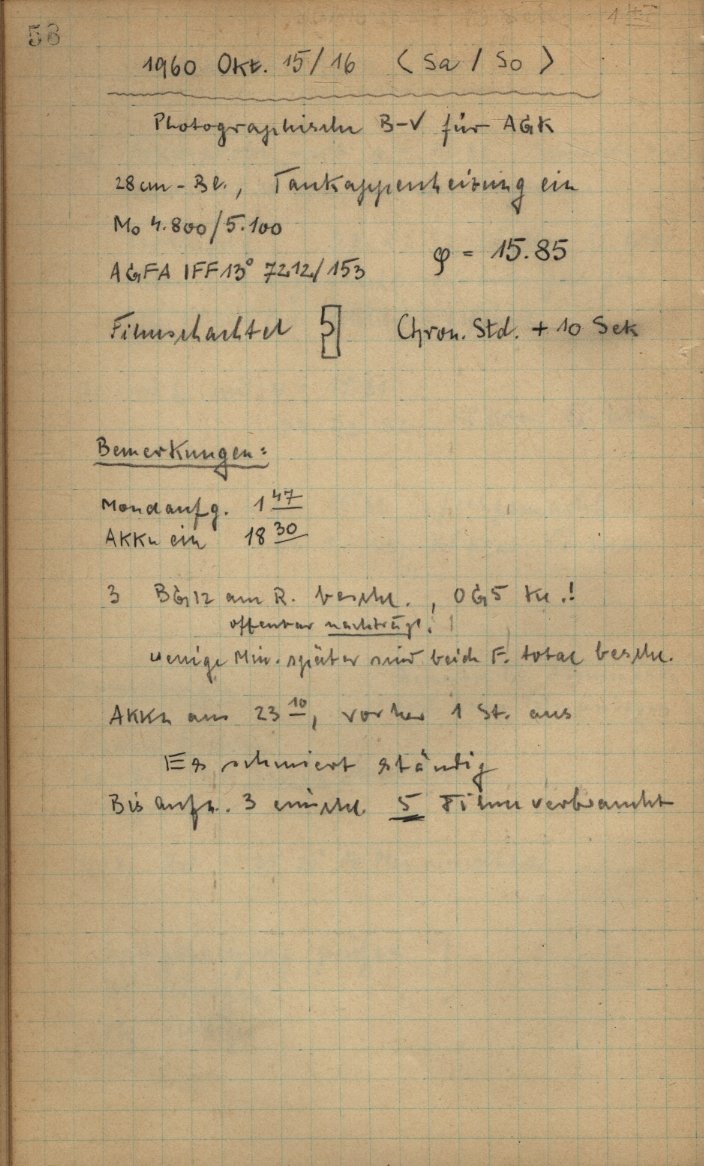 58
1960 Okt. 15/16 (Sa / So)
Photographische B-V für AGK
28cm - Bl., Taukappenheizung ein
Mo 4.800/5.100
φ = 15.85
AGFA IFF 13° 7212/153
Filmschachtel 5 Chron. Std. + 10 Sek
Bemerkungen:
Mondaufg. 1 47
AKKu ein 18 30
3 BG12 am R. beschl., OG5 !
offenbar nachträgl.!
wenige Min. später sind beide F. total beschl.
AKKu aus 23 10, vorher 1 St. aus
Es schmiert ständig
Bis Aufn. 3 einschl 5 Filme verbraucht